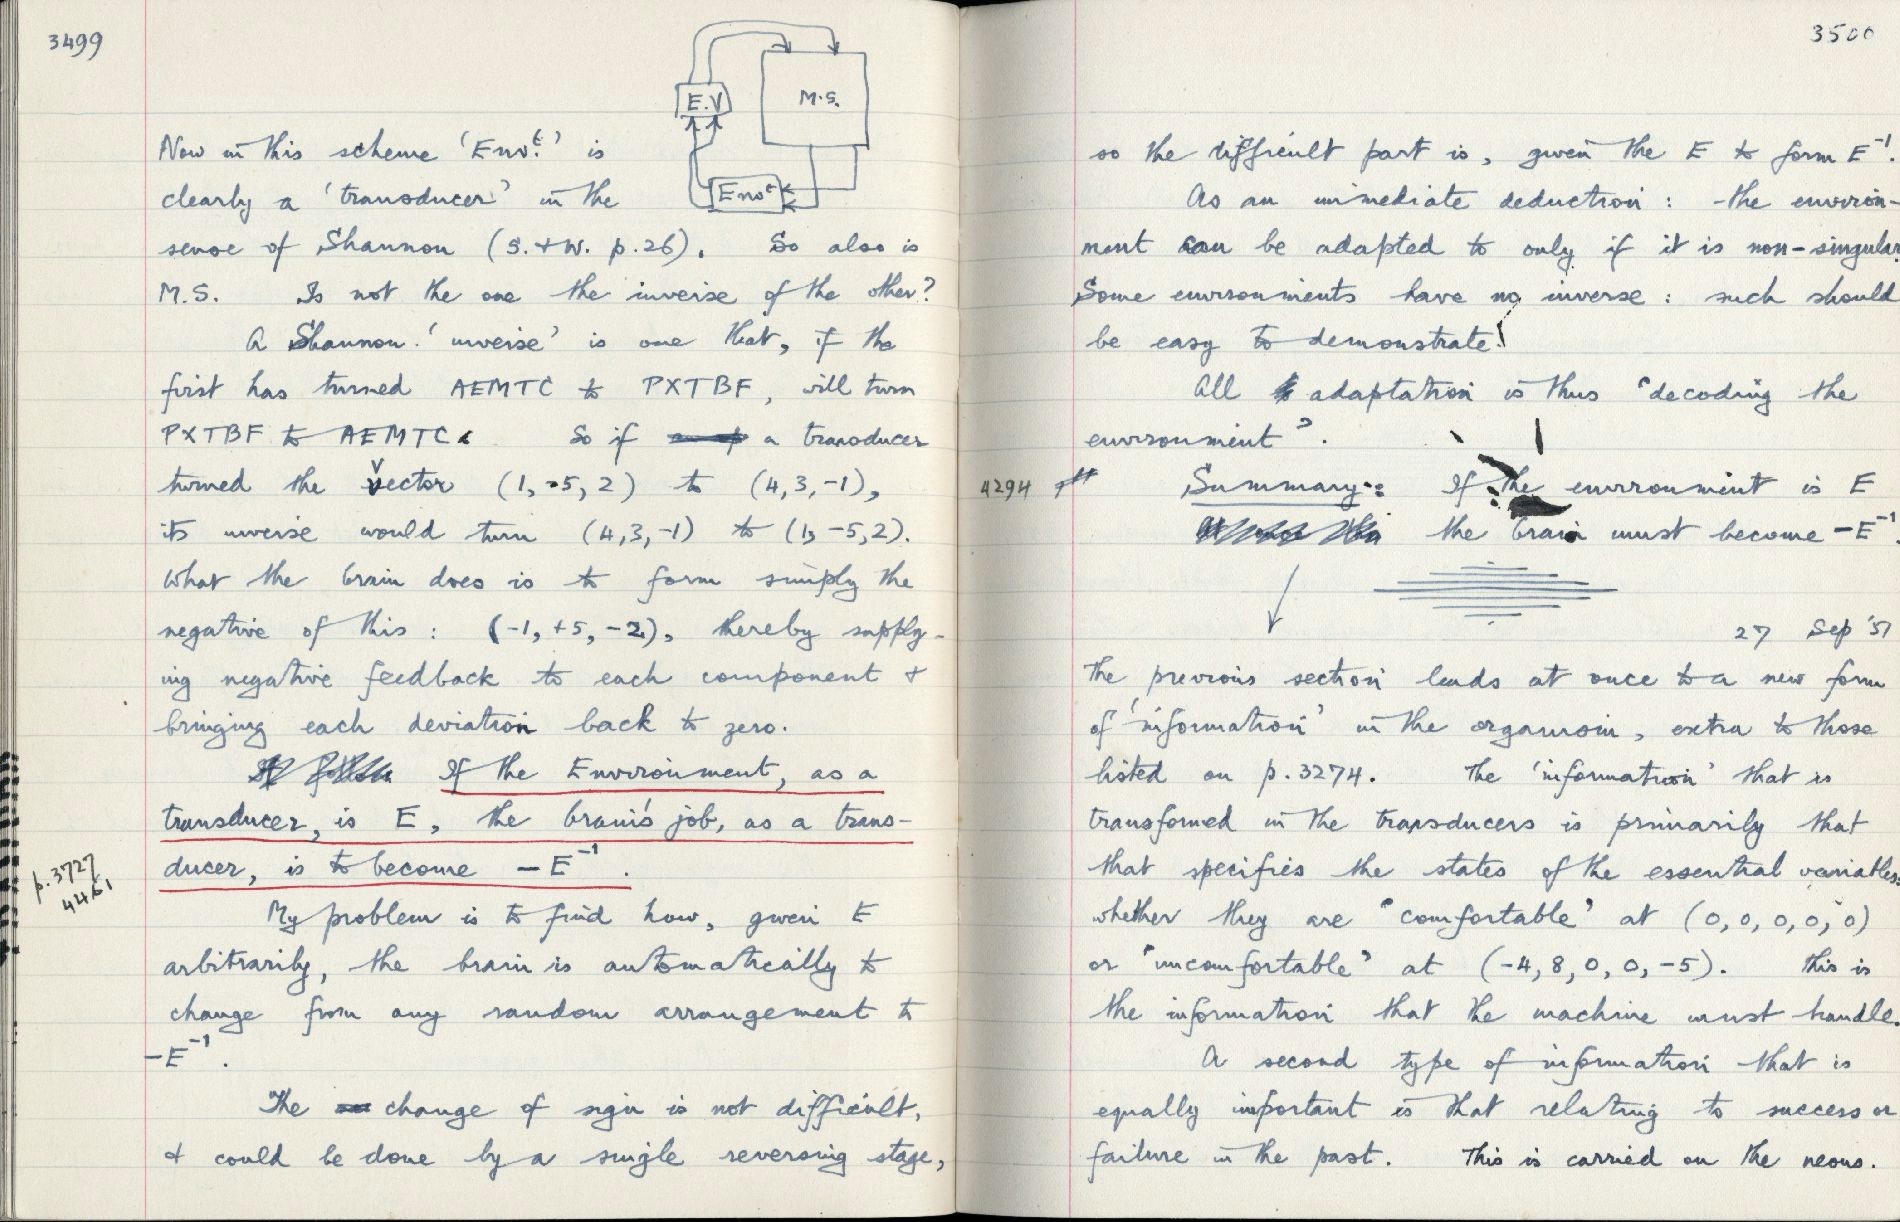 3499
E.V
M.S.
Envt
Now in this scheme 'Envt.' is
clearly a 'transducer' in the
sense of Shannon (S.+W. p.26). So also is
M.S. Is not the one the inverse of the other?
A Shannon 'inverse' is one that, if the
first has turned AEMTC to PXTBF, will turn
PXTBF to AEMTC. So if a transducer
turned the vector (1, -5, 2) to (4, 3, -1),
its inverse would turn (4, 3, -1) to (1, -5, 2).
What the brain does is to form simply the
negative of this: (-1, +5, -2), thereby supply-
ing negative feedback to each component &
bringing each deviation back to zero.
If the Environment, as a
transducer, is E, the brain's job, as a trans-
ducer, is to become -E⁻¹.
p.3727
4461
My problem is to find how, given E
arbitrarily, the brain is automatically to
change from any random arrangement to
-E⁻¹.
The change of sign is not difficult,
& could be done by a single reversing stage,
3500
so the difficult part is, given the E to form E⁻¹.
As an immediate deduction: - the environ-
ment can be adapted to only if it is non-singular.
Some environments have no inverse: such should
be easy to demonstrate!
All adaptation is thus "decoding the
environment".
4294
Summary: If the environment is E
the brain must become -E⁻¹.
27 Sep '51
The previous section leads at once to a new form
of 'information' in the organism, extra to those
listed on p.3274. The 'information' that is
transformed in the transducers is primarily that
that specifies the states of the essential variables:
whether they are "comfortable" at (0, 0, 0, 0, 0)
or "uncomfortable" at (-4, 8, 0, 0, -5). This is
the information that the machine must handle.
A second type of information that is
equally important is that relating to success or
failure in the past. This is carried on the neons.